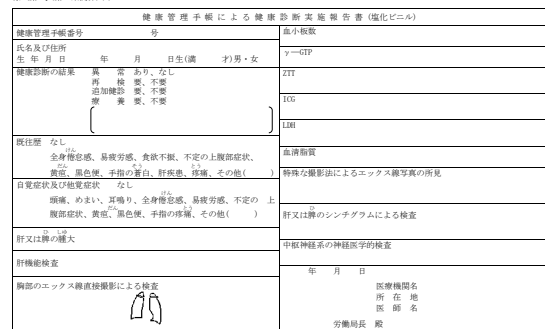 健康管理手帳による健康診断実施報告書(塩化ビニル)
健康管理手帳番号　　　号
氏名及び住所
生年月日　　年　　月　　日生(満　　才)男・女
健康診断の結果　異　常　あり、なし
再　検　要、不要
追加健診　要、不要
療　養　要、不要
既往歴　なし
けん
全身倦怠感、易疲労感、食欲不振、不定の上腹部症状、
だん　そう　とう
黄疸、黒色便、手指の蒼白、肝疾患、疼痛、その他(　　)
自覚症状及び他覚症状　なし
けん
頭痛、めまい、耳鳴り、全身倦怠感、易疲労感、不定の　上
だん　とう
腹部症状、黄疸、黒色便、手指の疼痛、その他(　　)
ひ　しゅ
肝又は脾の腫大
肝機能検査
胸部のエックス線直接撮影による検査
血小板数
γ―GTP
ZTT
ICG
LDH
血清脂質
特殊な撮影法によるエックス線写真の所見
ひ
肝又は脾のシンチグラムによる検査
中枢神経系の神経医学的検査
年　月　日
医療機関名
所　在　地
医　師　名
労働局長　殿